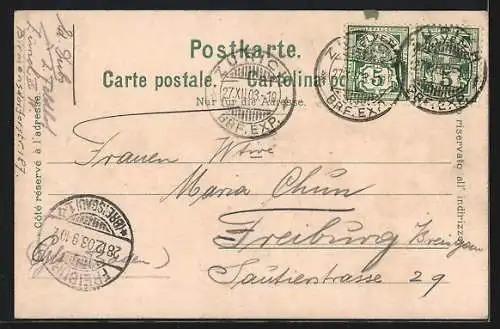 Postkarte.
Carte postale. Cartolina po
Nur für die Adresse.
ZÜRICH
27.XII.03.-10
BRF. EXP.
ZÜRICH
BRF. EXP.
BRF. EXP.
5
5
Côté réservé à l'adresse.
riservato all' indirizzo.
Frauen Wwe
Maria Chun
Freiburg
Sautierstrasse 29
(Baden)
FREIBURG
(BREISGAU)
28.12.03.